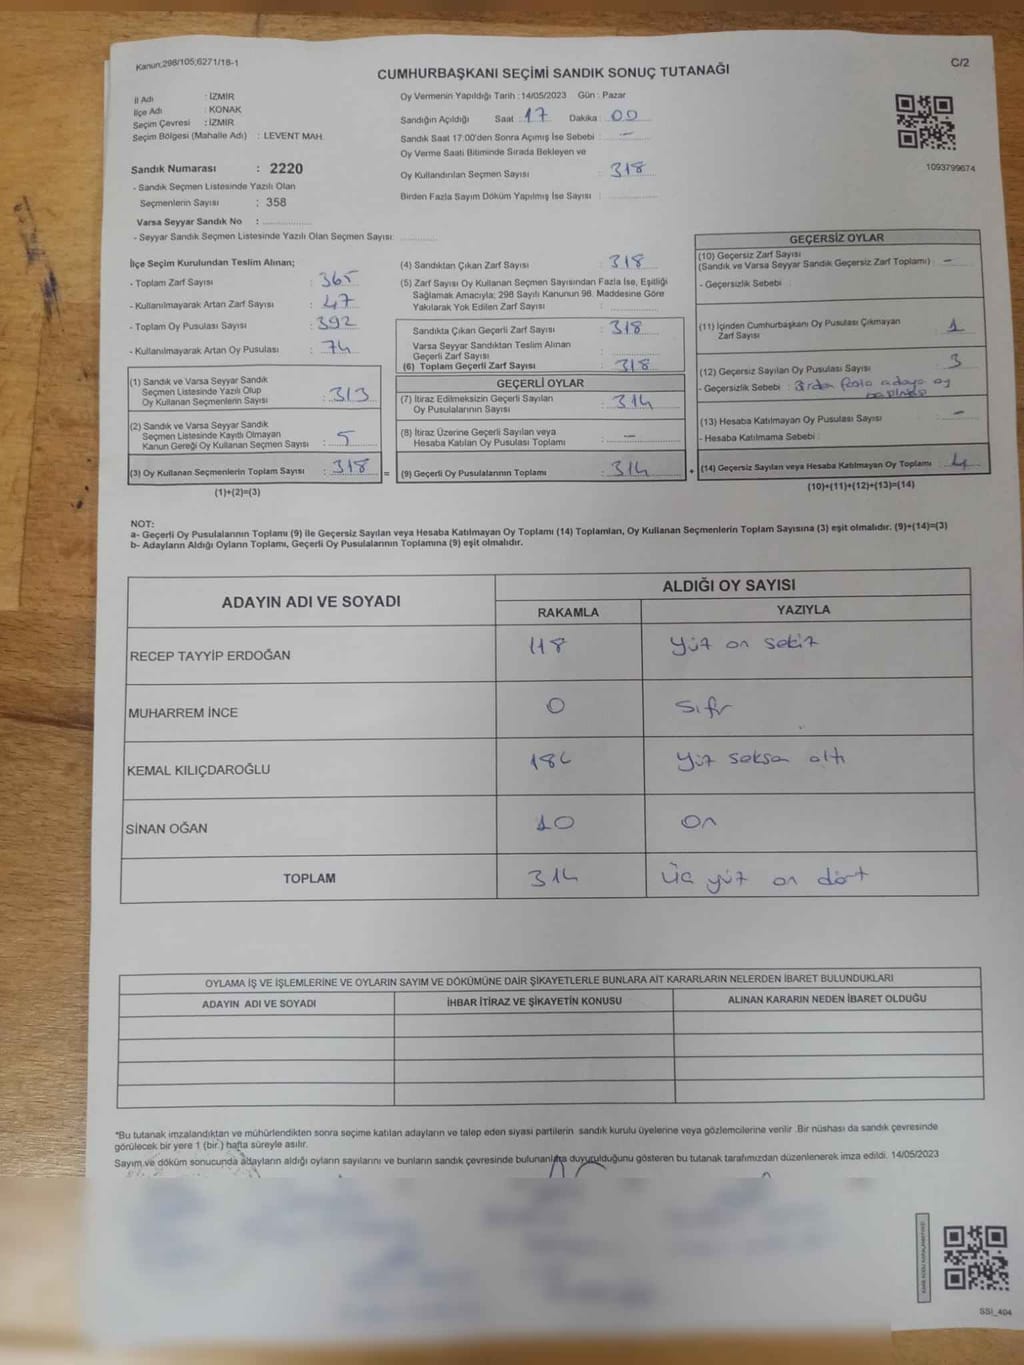 Kanun;298/105;6271/18-1
CUMHURBAŞKANI SEÇİMİ SANDIK SONUÇ TUTANAĞI
C/2
İl Adı : İZMİR
İlçe Adı : KONAK
Seçim Çevresi : İZMİR
Seçim Bölgesi (Mahalle Adı) : LEVENT MAH.
Sandık Numarası : 2220
- Sandık Seçmen Listesinde Yazılı Olan
Seçmenlerin Sayısı : 358
Varsa Seyyar Sandık No : ..............
- Seyyar Sandık Seçmen Listesinde Yazılı Olan Seçmen Sayısı: ..............
Oy Vermenin Yapıldığı Tarih : 14/05/2023 Gün : Pazar
Sandığın Açıldığı Saat : 17 Dakika : 00
Sandık Saat 17:00'den Sonra Açımış İse Sebebi : —
Oy Verme Saati Bitiminde Sırada Bekleyen ve
Oy Kullandırılan Seçmen Sayısı : 318
Birden Fazla Sayım Döküm Yapılmış İse Sayısı : ..............
1093799674
İlçe Seçim Kurulundan Teslim Alınan;
- Toplam Zarf Sayısı : 365
- Kullanılmayarak Artan Zarf Sayısı : 47
- Toplam Oy Pusulası Sayısı : 392
- Kullanılmayarak Artan Oy Pusulası : 74
(1) Sandık ve Varsa Seyyar Sandık
Seçmen Listesinde Yazılı Olup
Oy Kullanan Seçmenlerin Sayısı : 313
(2) Sandık ve Varsa Seyyar Sandık
Seçmen Listesinde Kayıtlı Olmayan
Kanun Gereği Oy Kullanan Seçmen Sayısı : 5
(3) Oy Kullanan Seçmenlerin Toplam Sayısı : 318 =
(1)+(2)=(3)
(4) Sandıktan Çıkan Zarf Sayısı : 318
(5) Zarf Sayısı Oy Kullanan Seçmen Sayısından Fazla İse, Eşitliği
Sağlamak Amacıyla; 298 Sayılı Kanunun 98. Maddesine Göre
Yakılarak Yok Edilen Zarf Sayısı : ..............
Sandıkta Çıkan Geçerli Zarf Sayısı : 318
Varsa Seyyar Sandıktan Teslim Alınan
Geçerli Zarf Sayısı : ..............
(6) Toplam Geçerli Zarf Sayısı : 318
GEÇERLİ OYLAR
(7) İtiraz Edilmeksizin Geçerli Sayılan
Oy Pusulalarının Sayısı : 314
(8) İtiraz Üzerine Geçerli Sayılan veya
Hesaba Katılan Oy Pusulası Toplamı : —
(9) Geçerli Oy Pusulalarının Toplamı : 314 +
GEÇERSİZ OYLAR
(10) Geçersiz Zarf Sayısı
(Sandık ve Varsa Seyyar Sandık Geçersiz Zarf Toplamı) : —
- Geçersizlik Sebebi :
(11) İçinden Cumhurbaşkanı Oy Pusulası Çıkmayan
Zarf Sayısı : 1
(12) Geçersiz Sayılan Oy Pusulası Sayısı : 3
- Geçersizlik Sebebi : Birden fazla adaya oy
(13) Hesaba Katılmayan Oy Pusulası Sayısı : —
- Hesaba Katılmama Sebebi :
(14) Geçersiz Sayılan veya Hesaba Katılmayan Oy Toplamı : 4
(10)+(11)+(12)+(13)=(14)
NOT:
a- Geçerli Oy Pusulalarının Toplamı (9) ile Geçersiz Sayılan veya Hesaba Katılmayan Oy Toplamı (14) Toplamları, Oy Kullanan Seçmenlerin Toplam Sayısına (3) eşit olmalıdır. (9)+(14)=(3)
b- Adayların Aldığı Oyların Toplamı, Geçerli Oy Pusulalarının Toplamına (9) eşit olmalıdır.
ADAYIN ADI VE SOYADI ALDIĞI OY SAYISI
RAKAMLA YAZIYLA
RECEP TAYYİP ERDOĞAN 118 yüz on sekiz
MUHARREM İNCE 0 sıfır
KEMAL KILIÇDAROĞLU 186 yüz seksen altı
SİNAN OĞAN 10 on
TOPLAM 314 üç yüz on dört
OYLAMA İŞ VE İŞLEMLERİNE VE OYLARIN SAYIM VE DÖKÜMÜNE DAİR ŞİKAYETLERLE BUNLARA AİT KARARLARIN NELERDEN İBARET BULUNDUKLARI
ADAYIN ADI VE SOYADI İHBAR İTİRAZ VE ŞİKAYETİN KONUSU ALINAN KARARIN NEDEN İBARET OLDUĞU
*Bu tutanak imzalandıktan ve mühürlendikten sonra seçime katılan adayların ve talep eden siyasi partilerin sandık kurulu üyelerine veya gözlemcilerine verilir .Bir nüshası da sandık çevresinde
görülecek bir yere 1 (bir ) hafta süreyle asılır.
Sayım ve döküm sonucunda adayların aldığı oyların sayılarını ve bunların sandık çevresinde bulunanlara duyurulduğunu gösteren bu tutanak tarafımızdan düzenlenerek imza edildi. 14/05/2023
SSİ_404